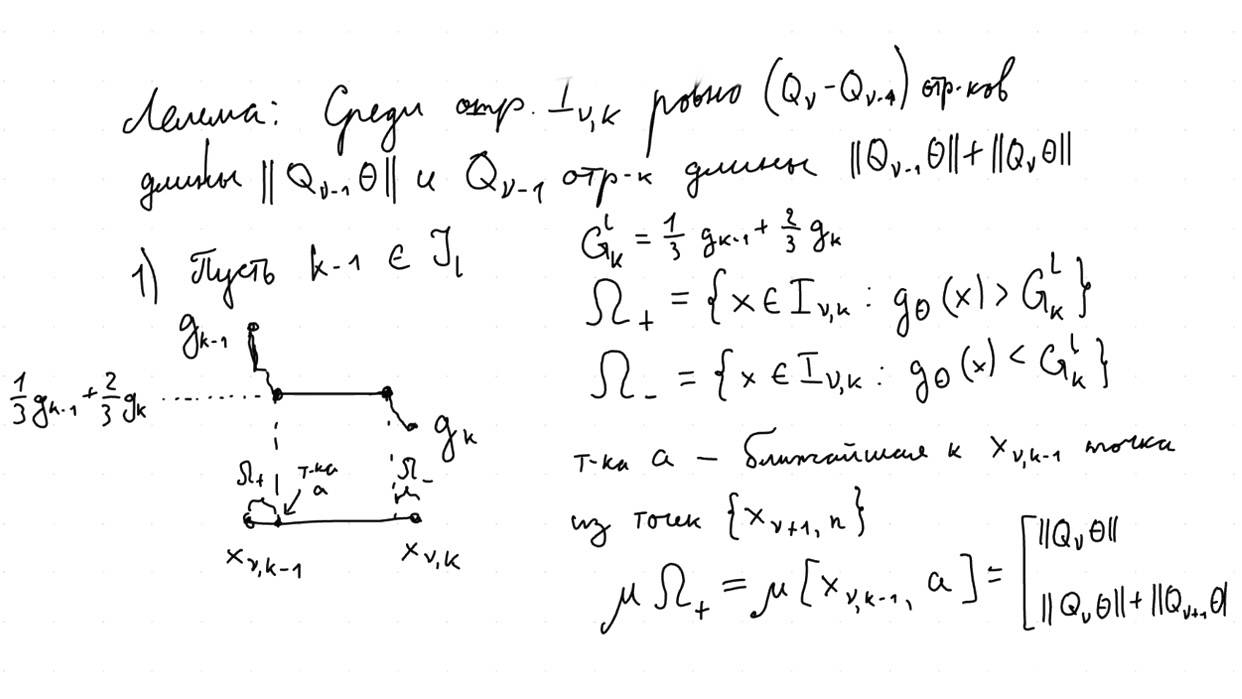 Лемма: Среди отр. I_{ν,k} ровно (Q_ν - Q_{ν-1}) отр-ков
длины ||Q_{ν-1}θ|| и Q_{ν-1} отр-к длины ||Q_{ν-1}θ|| + ||Q_νθ||
1) Пусть k-1 ∈ J_l
G_k^l = 1/3 g_{k-1} + 2/3 g_k
Ω_+ = {x ∈ I_{ν,k} : g_θ(x) > G_k^l}
Ω_- = {x ∈ I_{ν,k} : g_θ(x) < G_k^l}
g_{k-1}
1/3 g_{k-1} + 2/3 g_k
g_k
Ω_+
т-ка
a
Ω_-
x_{ν,k-1}
x_{ν,k}
т-ка a – ближайшая к x_{ν,k-1} точка
из точек {x_{ν+1,n}}
μΩ_+ = μ[x_{ν,k-1}, a] = [ ||Q_νθ||
||Q_νθ|| + ||Q_{ν+1}θ|